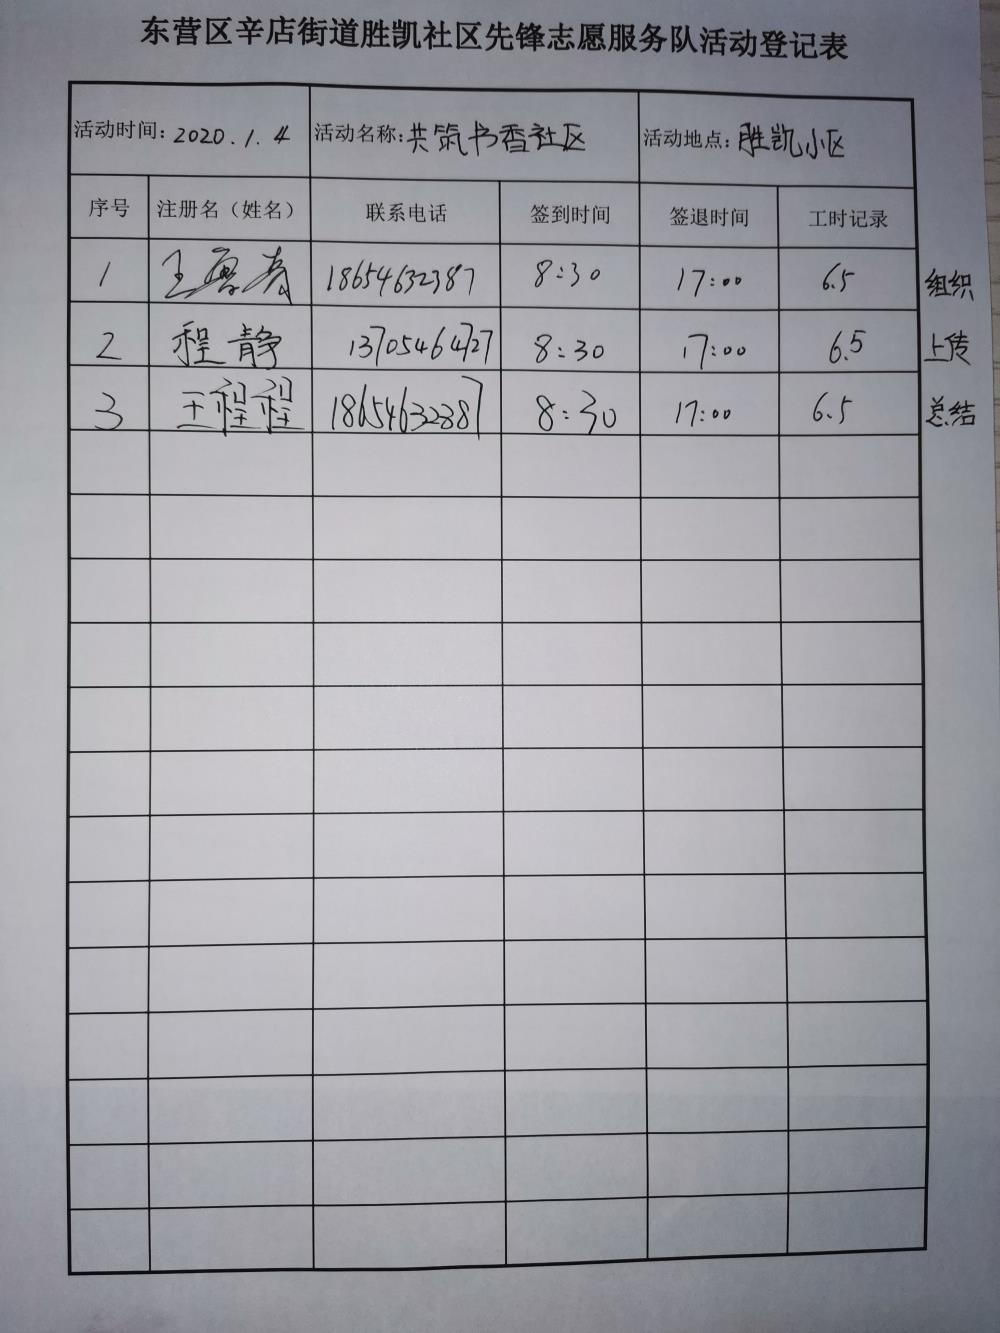 东营区辛店街道胜凯社区先锋志愿服务队活动登记表
活动时间：2020.1.4 活动名称：共筑书香社区 活动地点：胜凯小区
序号 注册名（姓名） 联系电话 签到时间 签退时间 工时记录
1 王 18654632387 8:30 17:00 6.5 组织
2 程静 13705464727 8:30 17:00 6.5 上传
3 王程程 18654632387 8:30 17:00 6.5 总结